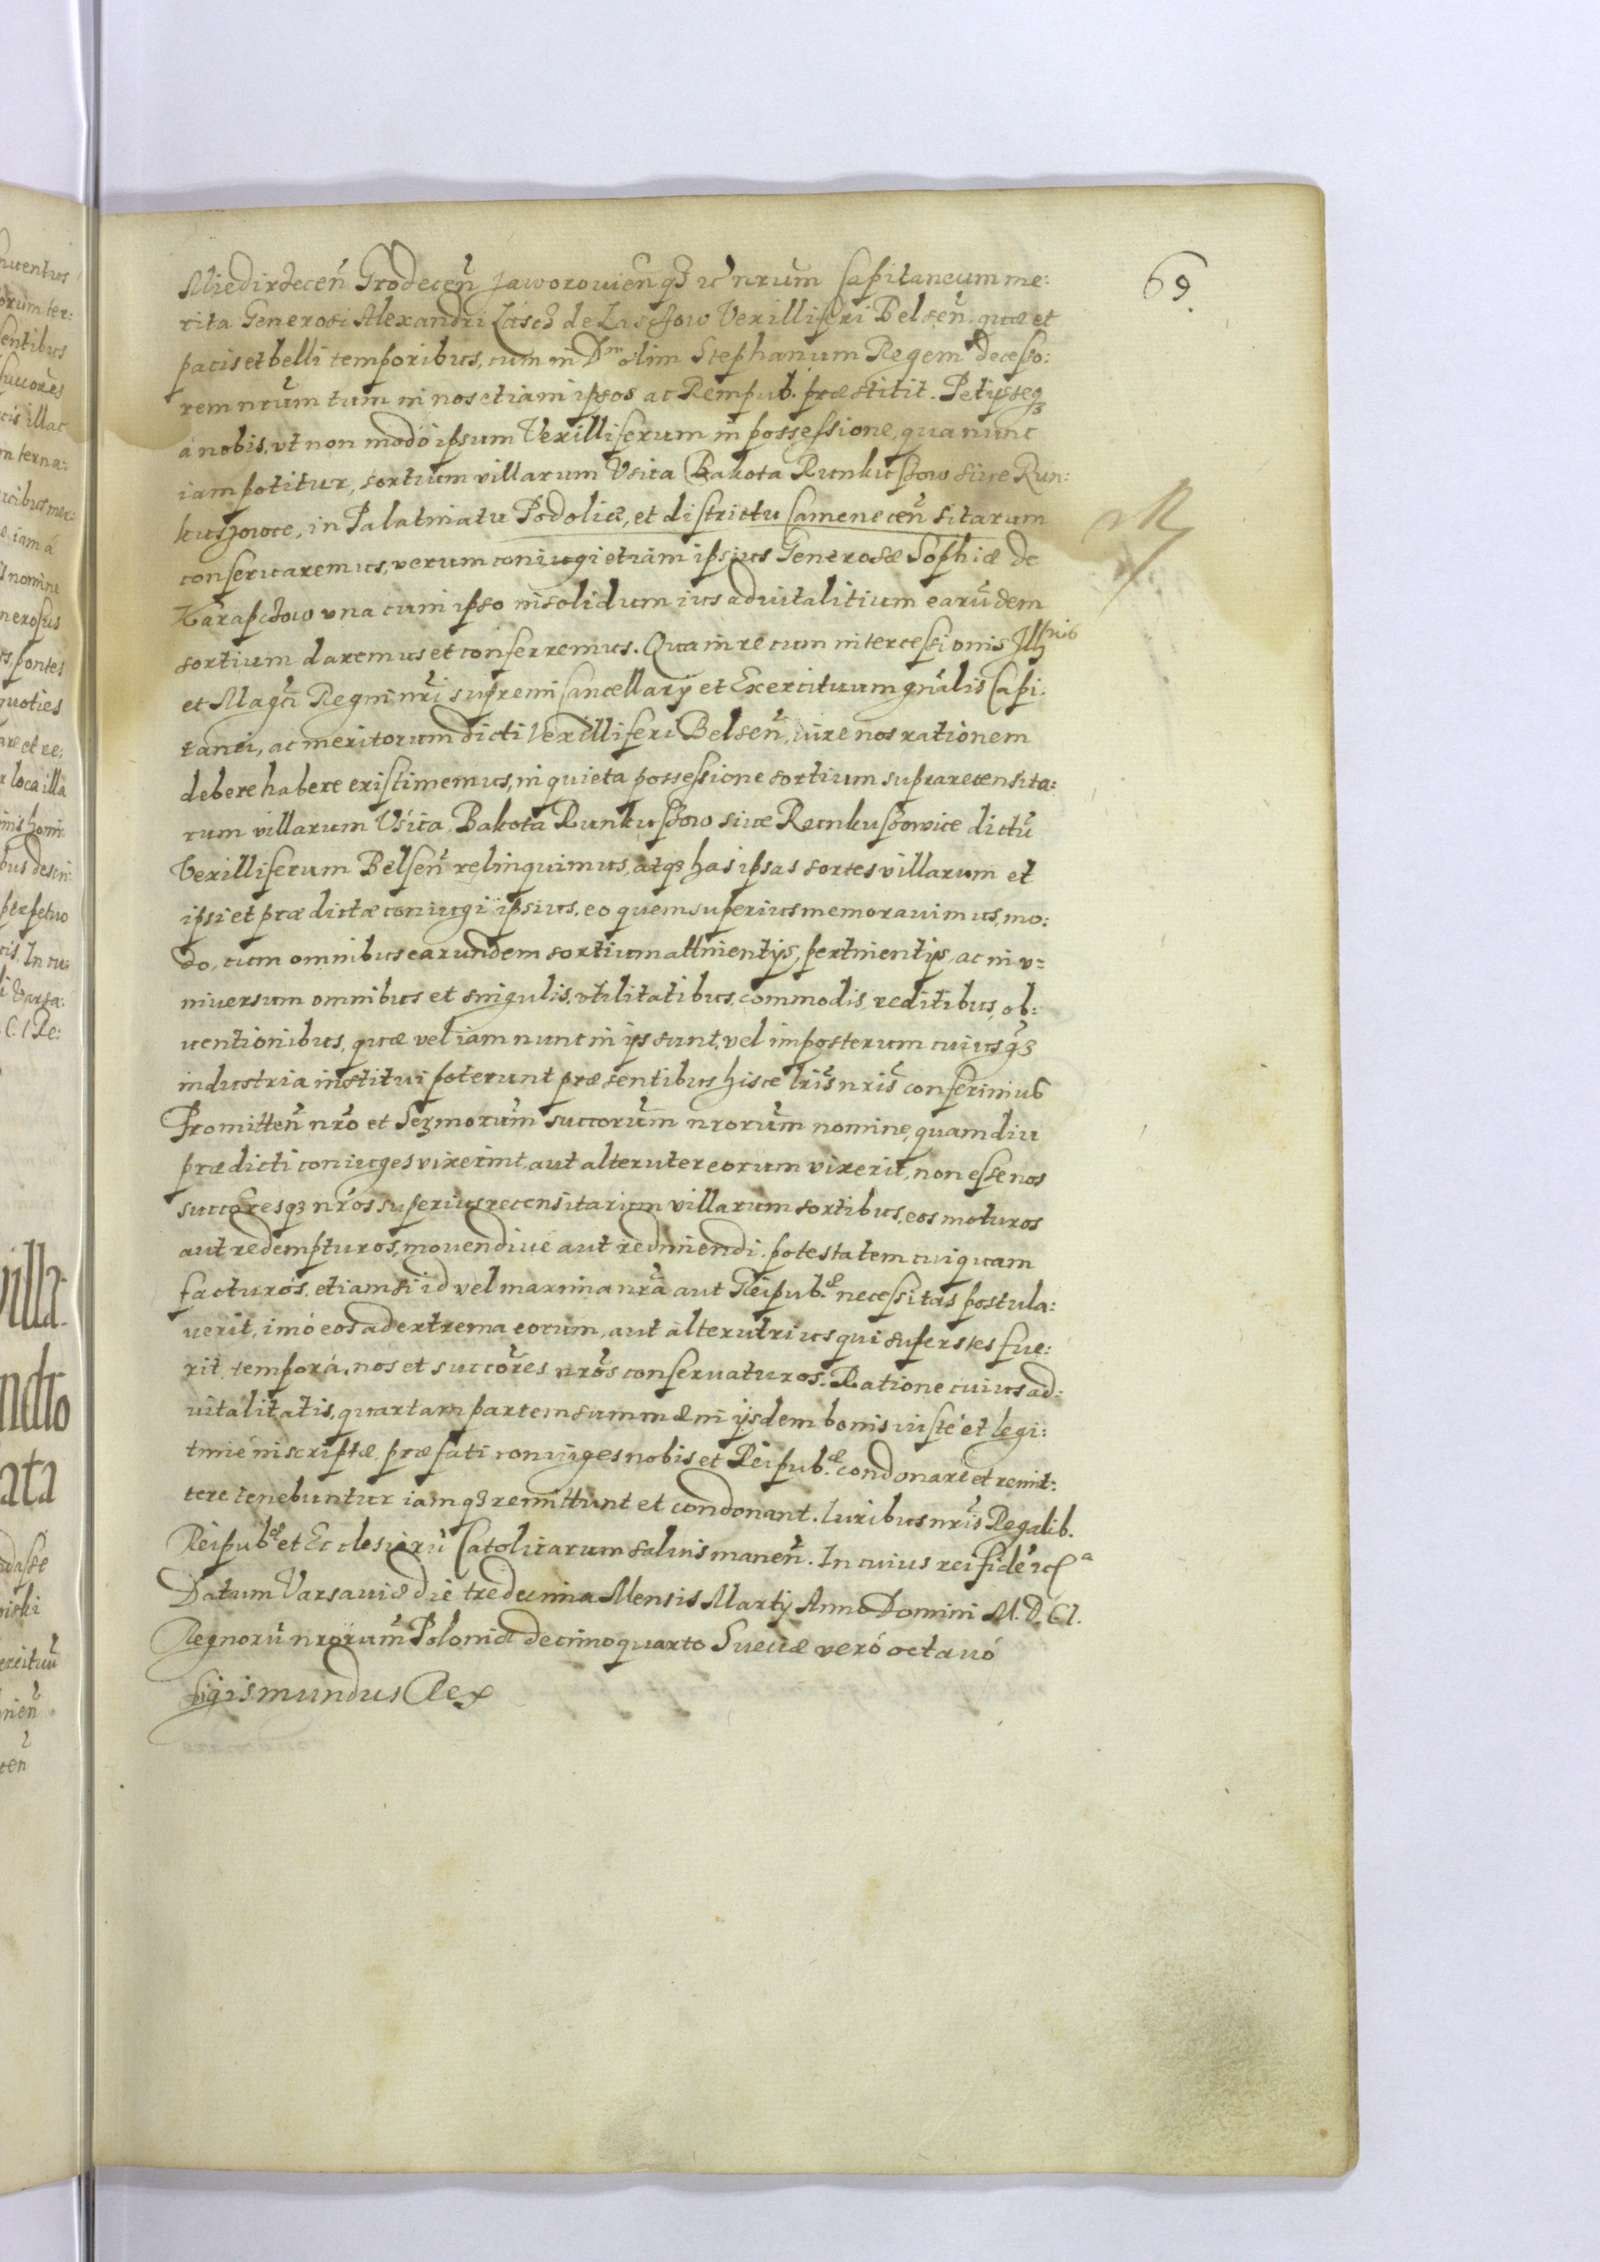 69.
Miedirzecen̄ Grodecen̄ Jaworouien̄ qʒ ꝛc nrum Capitaneum me:
rita Generosi Alexandri Łascz de Lasczow Vexilliferi Belsen̄. quæ et
pacis et belli temporibus, cum in D^m olim Stephanum Regem decesso:
rem nrūm tum in nos etiam ipsos ac Rempub. præstitit. Petijtqʒ
á nobis, vt non modó ipsum Vexilliferum in possessione, qua nunc
iam potitur, sortium villarum Vsica Bakota Runkuszow siue Run:
kuszowce, in Palatinatu Podoliæ, et districtu Camenecen̄ sitarum
conseruaremus, verum coniugi etiam ipsius Generosæ Sophiæ de
Karapczow vna cum ipso in solidum ius aduitalitium earūdem
sortium daremus et conferremus. Qua in re cum intercessionis Ill^mis
et Mag^ci Regni nrī supremi Cancellarij et Exercituum gnālis Capi:
tanei, ac meritorum dicti Vexilliferi Belsen̄, iure nos rationem
debere habere existimemus, in quieta possessione sortium suprarecensita:
rum villarum Vsica, Bakota Runkuszow siue Runkuszowice dictū
Vexilliferum Belsen̄ relinquimus, atqʒ has ipsas sortes villarum et
ipsi et prædictæ coniugi ipsius, eo quem superius memorauimus, mo:
do, cum omnibus earundem sortium attinentijs, pertinentijs, ac in v=
niuersum omnibus et singulis, vtilitatibus, commodis, reditibus, ob:
uentionibus, quæ vel iam nunc in ijs sunt, vel imposterum cuiusqʒ
industria institui poterunt præsentibus hisce lrīs nrīs conferimus
Promitten̄ nrō et Serᵐorūm succorūm nrorūm nomine, quamdiu
prædicti coniuges vixerint, aut alteruter eorum vixerit, non esse nos
succoresqʒ nrōs superius recensitarum villarum sortibus, eos moturos
aut redempturos, mouendiué aut redimendi potestatem cuiquam
facturós, etiamsi id vel maxima nrā aut Reipub.^æ necessitas postula:
uerit, imó eos ad extrema eorum, aut alterutrius qui superstes fue:
rit tempora, nos et succores nrōs conseruaturos. Ratione cuius ad:
uitalitatis, quartam partem summæ in ijsdem bonis iusté et legi:
timé inscriptæ, præfati coniuges nobis et Reipub.^æ condonare et remit:
tere tenebuntur iamqʒ remittunt et condonant. Iuribus nrīs Regalib.
Reipub^æ et Ecclesiarū Catolicarum saluis manen̄. In cuius rei fidē ꝛc^a
Datum Varsauiæ die tredecima Mensis Martij Anno Domini M. D. CI.
Regnorū nrorūm Poloniæ decimoquarto Sueciæ veró octauó
Sigismundus Rex